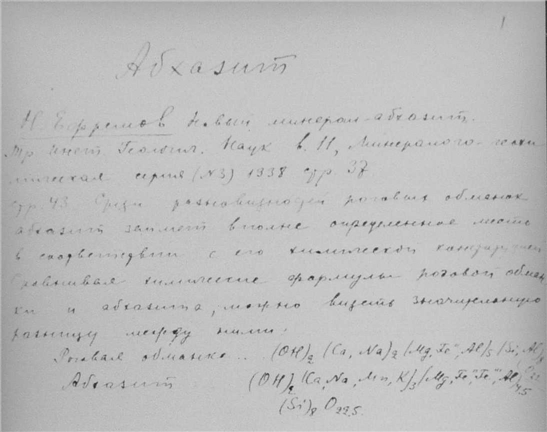 1
Абхазит
Н. Ефремов Новый минерал-абхазит.
Тр. Инст. Геологич. Наук в. 11, Минералого-геохи-
мическая серия (№3) 1938 стр 37
стр. 43. Среди разновидностей роговых обманок
абхазит займет вполне определенное место
в соответствии с его химической
Сравнивая химические формулы роговой обман-
ки и абхазита, можно видеть значительную
разницу между ними:
Роговая обманка .. (OH)2 (Ca, Na)2 (Mg, Fe'', Al)5 (Si, Al)8 O22
Абхазит (OH)2 (Ca, Na, Mn, K)3 (Mg, Fe'', Fe''', Al)4,5
(Si)8 O22,5.